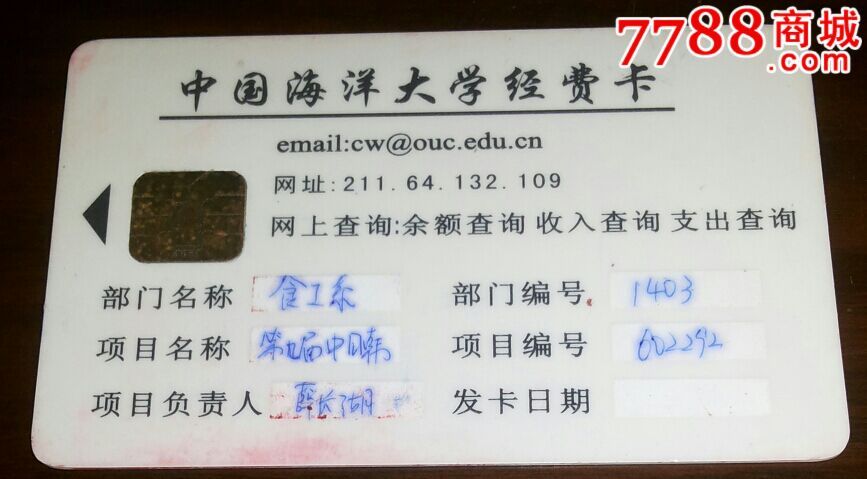 7788商城
.com
中国海洋大学经费卡
email:cw@ouc.edu.cn
网址:211.64.132.109
网上查询:余额查询 收入查询 支出查询
部门名称 食工系 部门编号 1403
项目名称 第九届中日韩 项目编号 602292
项目负责人 薛长湖 发卡日期